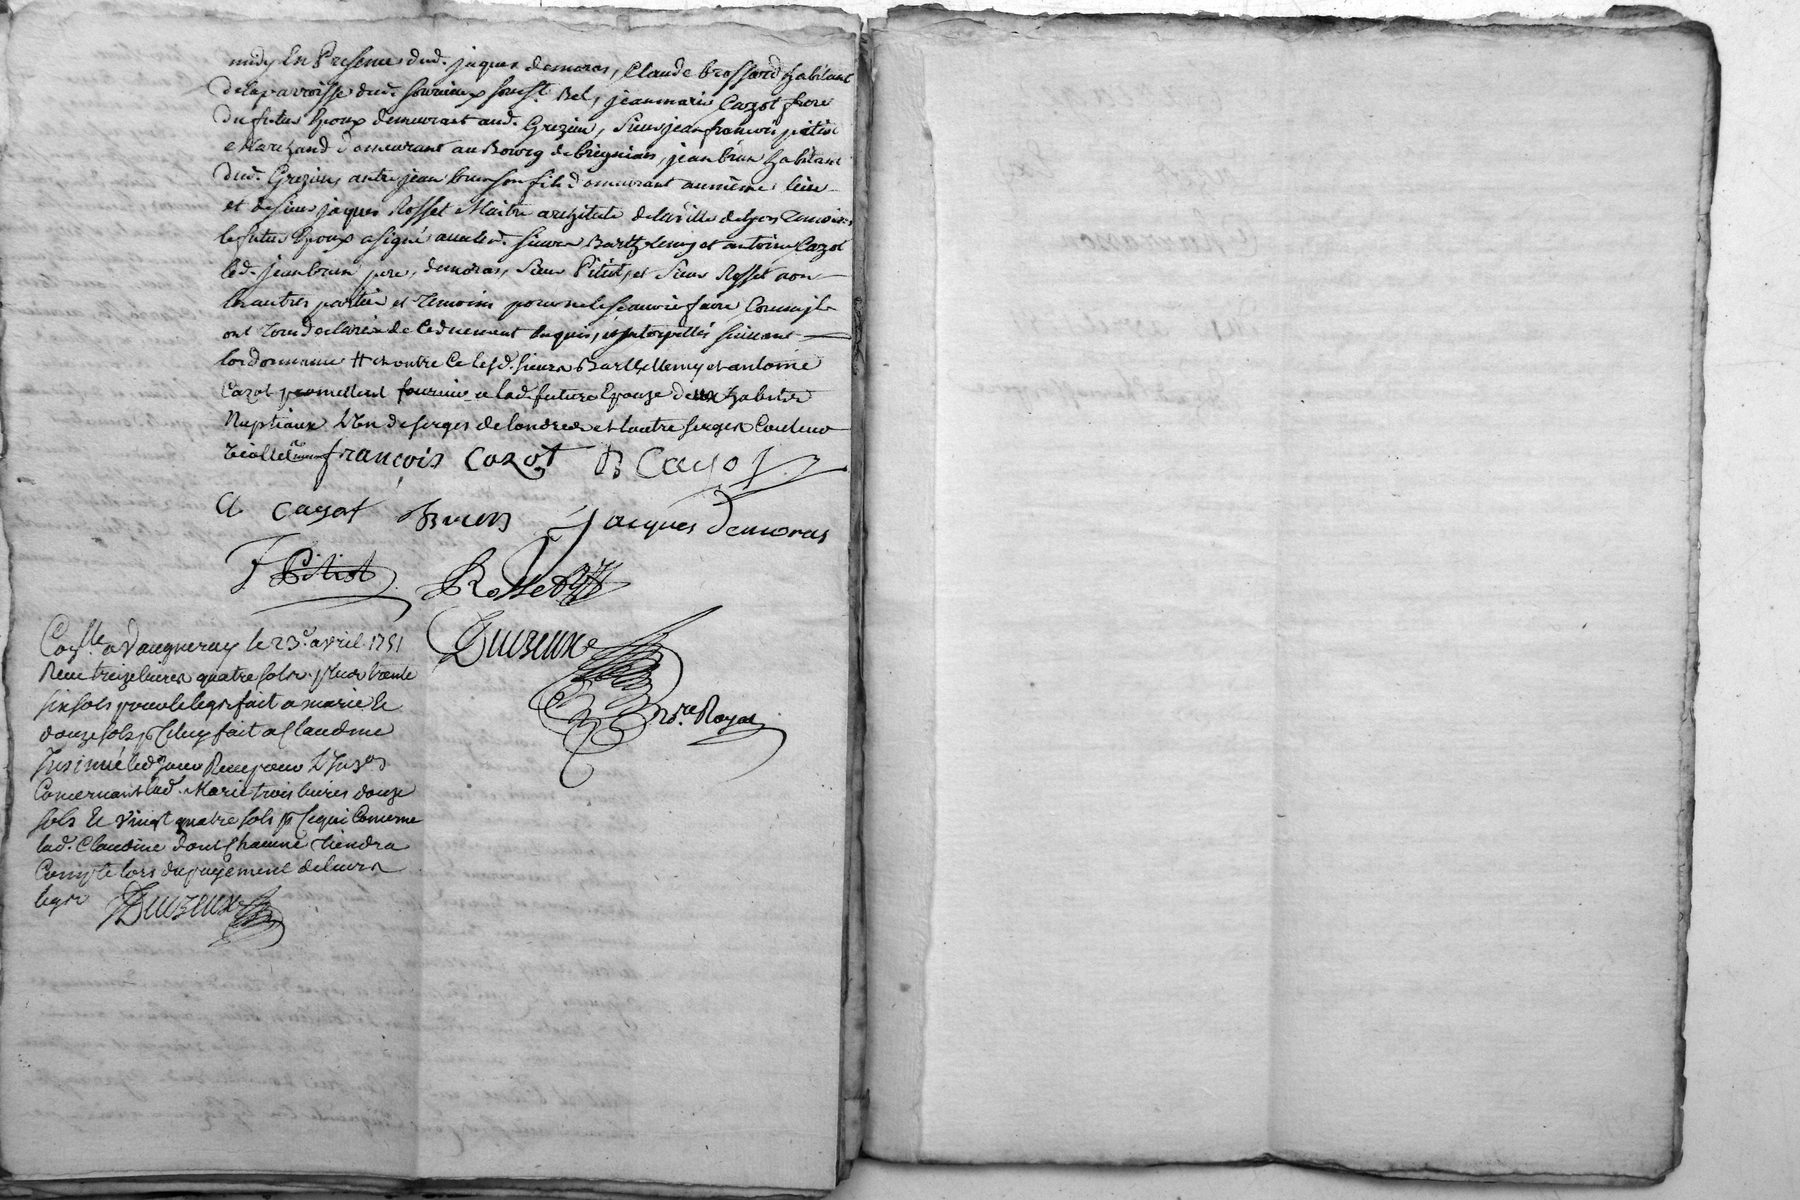 midy En Presence dud. jaques demoras, Claude brossard habitant
delaparroisse dud. Sourcieux sous St. Bel, jeanmarie Cazot frere
du futur Epoux demeurant aud. Grezieu, Sieur jean francois pitiot
Marchand demeurant au Bourg de brignais, jean brun habitant
dud. Grezieu autre jean brun son fils demeurant au même lieu
et de sieur jaques Rosset Maitre architecte delaville de lyon temoins
le futur Epoux a signé avec lesd. sieurs Barthelemy et antoine Cazot
led. jean brun pere, demoras, sieur Pitiot, et sieur Rosset non
les autres parties et temoins pour ne le scavoir faire Comme ils
ont tous declaré de Ce duement Enquis, et interpellés suivant
lordonnance # et outre Ce lesd. sieurs Barthellemy et antoine
Cazot promettent fournir a lad. future Epouze deux habits
Nuptiaux L'Un de serges de londres et l'autre serges Couleur
francois cazot B Cazot
A cazot Brun Jacques Demoras
J Pitiot Rosset
Duvzeux
No.re Royal
Co.lle a Vaugneray le 23e avril 1751
Receu treize livres quatre sols plus trente
six sols pour le legs fait a marie Et
douze sols p. Celuy fait a Claudine
Insinué led. Jour Receu pour L'Ins.on
Concernant lad. Marie trois livres douze
sols Et vingt quatre sols p. Ce qui Concerne
lad. Claudine dont Chacune tiendra
Compte lors du payement de leurs
legs Duvzeux